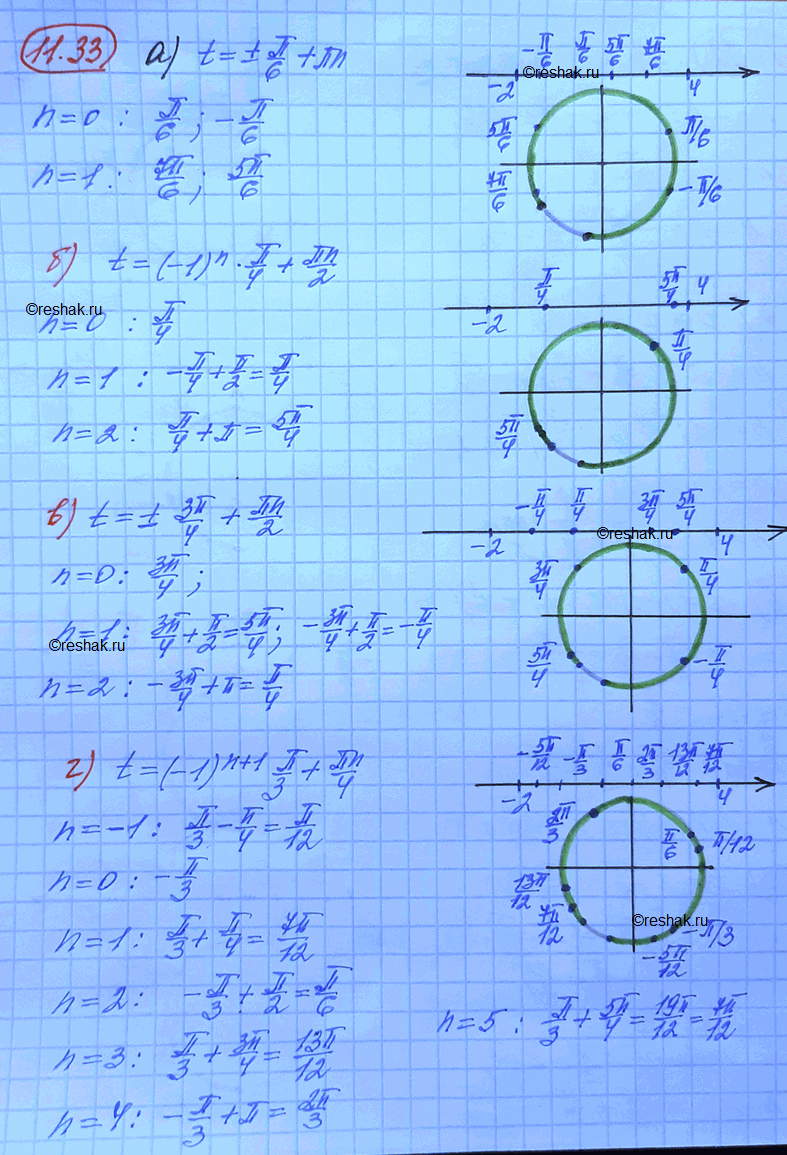 11.33 а) t = ± π/6 + πn
n = 0 : π/6 ; - π/6
n = 1 : 7π/6 ; 5π/6
-π/6 π/6 5π/6 7π/6
-2 ©reshak.ru 4
5π/6 π/6
7π/6 -π/6
б) t = (-1)ⁿ · π/4 + πn/2
©reshak.ru
n = 0 : π/4
n = 1 : -π/4 + π/2 = π/4
n = 2 : π/4 + π = 5π/4
π/4 5π/4 4
-2
π/4
5π/4
в) t = ± 3π/4 + πn/2
n = 0 : 3π/4 ;
n = 1 : 3π/4 + π/2 = 5π/4 ; -3π/4 + π/2 = -π/4
©reshak.ru
n = 2 : -3π/4 + π = π/4
-π/4 π/4 3π/4 5π/4
-2 ©reshak.ru 4
3π/4 π/4
5π/4 -π/4
г) t = (-1)ⁿ⁺¹ π/3 + πn/4
n = -1 : π/3 - π/4 = π/12
n = 0 : -π/3
n = 1 : π/3 + π/4 = 7π/12
n = 2 : -π/3 + π/2 = π/6
n = 3 : π/3 + 3π/4 = 13π/12
n = 4 : -π/3 + π = 2π/3
-5π/12 -π/3 π/6 2π/3 13π/12 7π/12
-2 4
2π/3 π/6 π/12
13π/12
7π/12 ©reshak.ru -π/3
-5π/12
n = 5 : π/3 + 5π/4 = 19π/12 = 7π/12